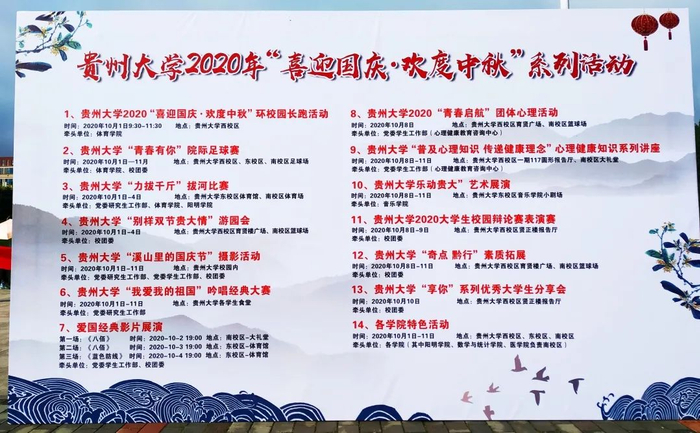 贵州大学2020年“喜迎国庆·欢度中秋”系列活动
1、贵州大学2020“喜迎国庆·欢度中秋”环校园长跑活动
时间：2020年10月1日9:30-11:30 地点：贵州大学西校区
牵头单位：体育学院
2、贵州大学“青春有你”院际足球赛
时间：2020年10月1日—11月 地点：贵州大学西校区、东校区、南校区足球场
牵头单位：体育学院、校团委
3、贵州大学“力拔千斤”拔河比赛
时间：2020年10月1日-4日 地点：贵州大学东校区体育馆、南校区体育场
牵头单位：党委研究生工作部、体育学院、阳明学院
4、贵州大学“别样双节贵大情”游园会
时间：2020年10月1日-4日 地点：贵州大学西校区育贤楼广场、南校区篮球场
牵头单位：校团委
5、贵州大学“溪山里的国庆节”摄影活动
时间：2020年10月1日-11日 地点：贵州大学校园内
牵头单位：党委研究生工作部、党委学生工作部、校团委
6、贵州大学“我爱我的祖国”吟唱经典大赛
时间：2020年10月1日-11日 地点：贵州大学各学生食堂
牵头单位：党委研究生工作部
7、爱国经典影片展演
第一场：《八佰》 时间：2020-10-2 19:00 地点：南校区-大礼堂
第二场：《八佰》 时间：2020-10-3 19:00 地点：东校区-体育馆
第三场：《蓝色防线》 时间：2020-10-4 19:00 地点：东校区-体育馆
牵头单位：党委学生工作部、校团委
8、贵州大学2020“青春启航”团体心理活动
时间：2020年10月8日 地点：贵州大学西校区育贤广场、南校区篮球场
牵头单位：党委学生工作部（心理健康教育咨询中心）
9、贵州大学“普及心理知识 传递健康理念”心理健康知识系列讲座
时间：2020年10月8日-11日 地点：贵州大学西校区一期117圆形报告厅、南校区大礼堂
牵头单位：党委学生工作部（心理健康教育咨询中心）
10、贵州大学“乐动贵大”艺术展演
时间：2020年10月8日-11日 地点：贵州大学东校区音乐学院小剧场
牵头单位：音乐学院
11、贵州大学2020大学生校园辩论赛表演赛
时间：2020年10月8日-9日 地点：贵州大学西校区贤正楼报告厅
牵头单位：校团委
12、贵州大学“奇点 黔行”素质拓展
时间：2020年10月8日-11日 地点：贵州大学西校区育贤楼广场、南校区篮球场
牵头单位：校团委
13、贵州大学“享你”系列优秀大学生分享会
时间：2020年10月10日 地点：贵州大学西校区贤正楼报告厅
牵头单位：校团委
14、各学院特色活动
时间：2020年10月1日-11日 地点：贵州大学西校区、东校区、南校区
牵头单位：各学院（其中阳明学院、数学与统计学院、医学院负责南校区）